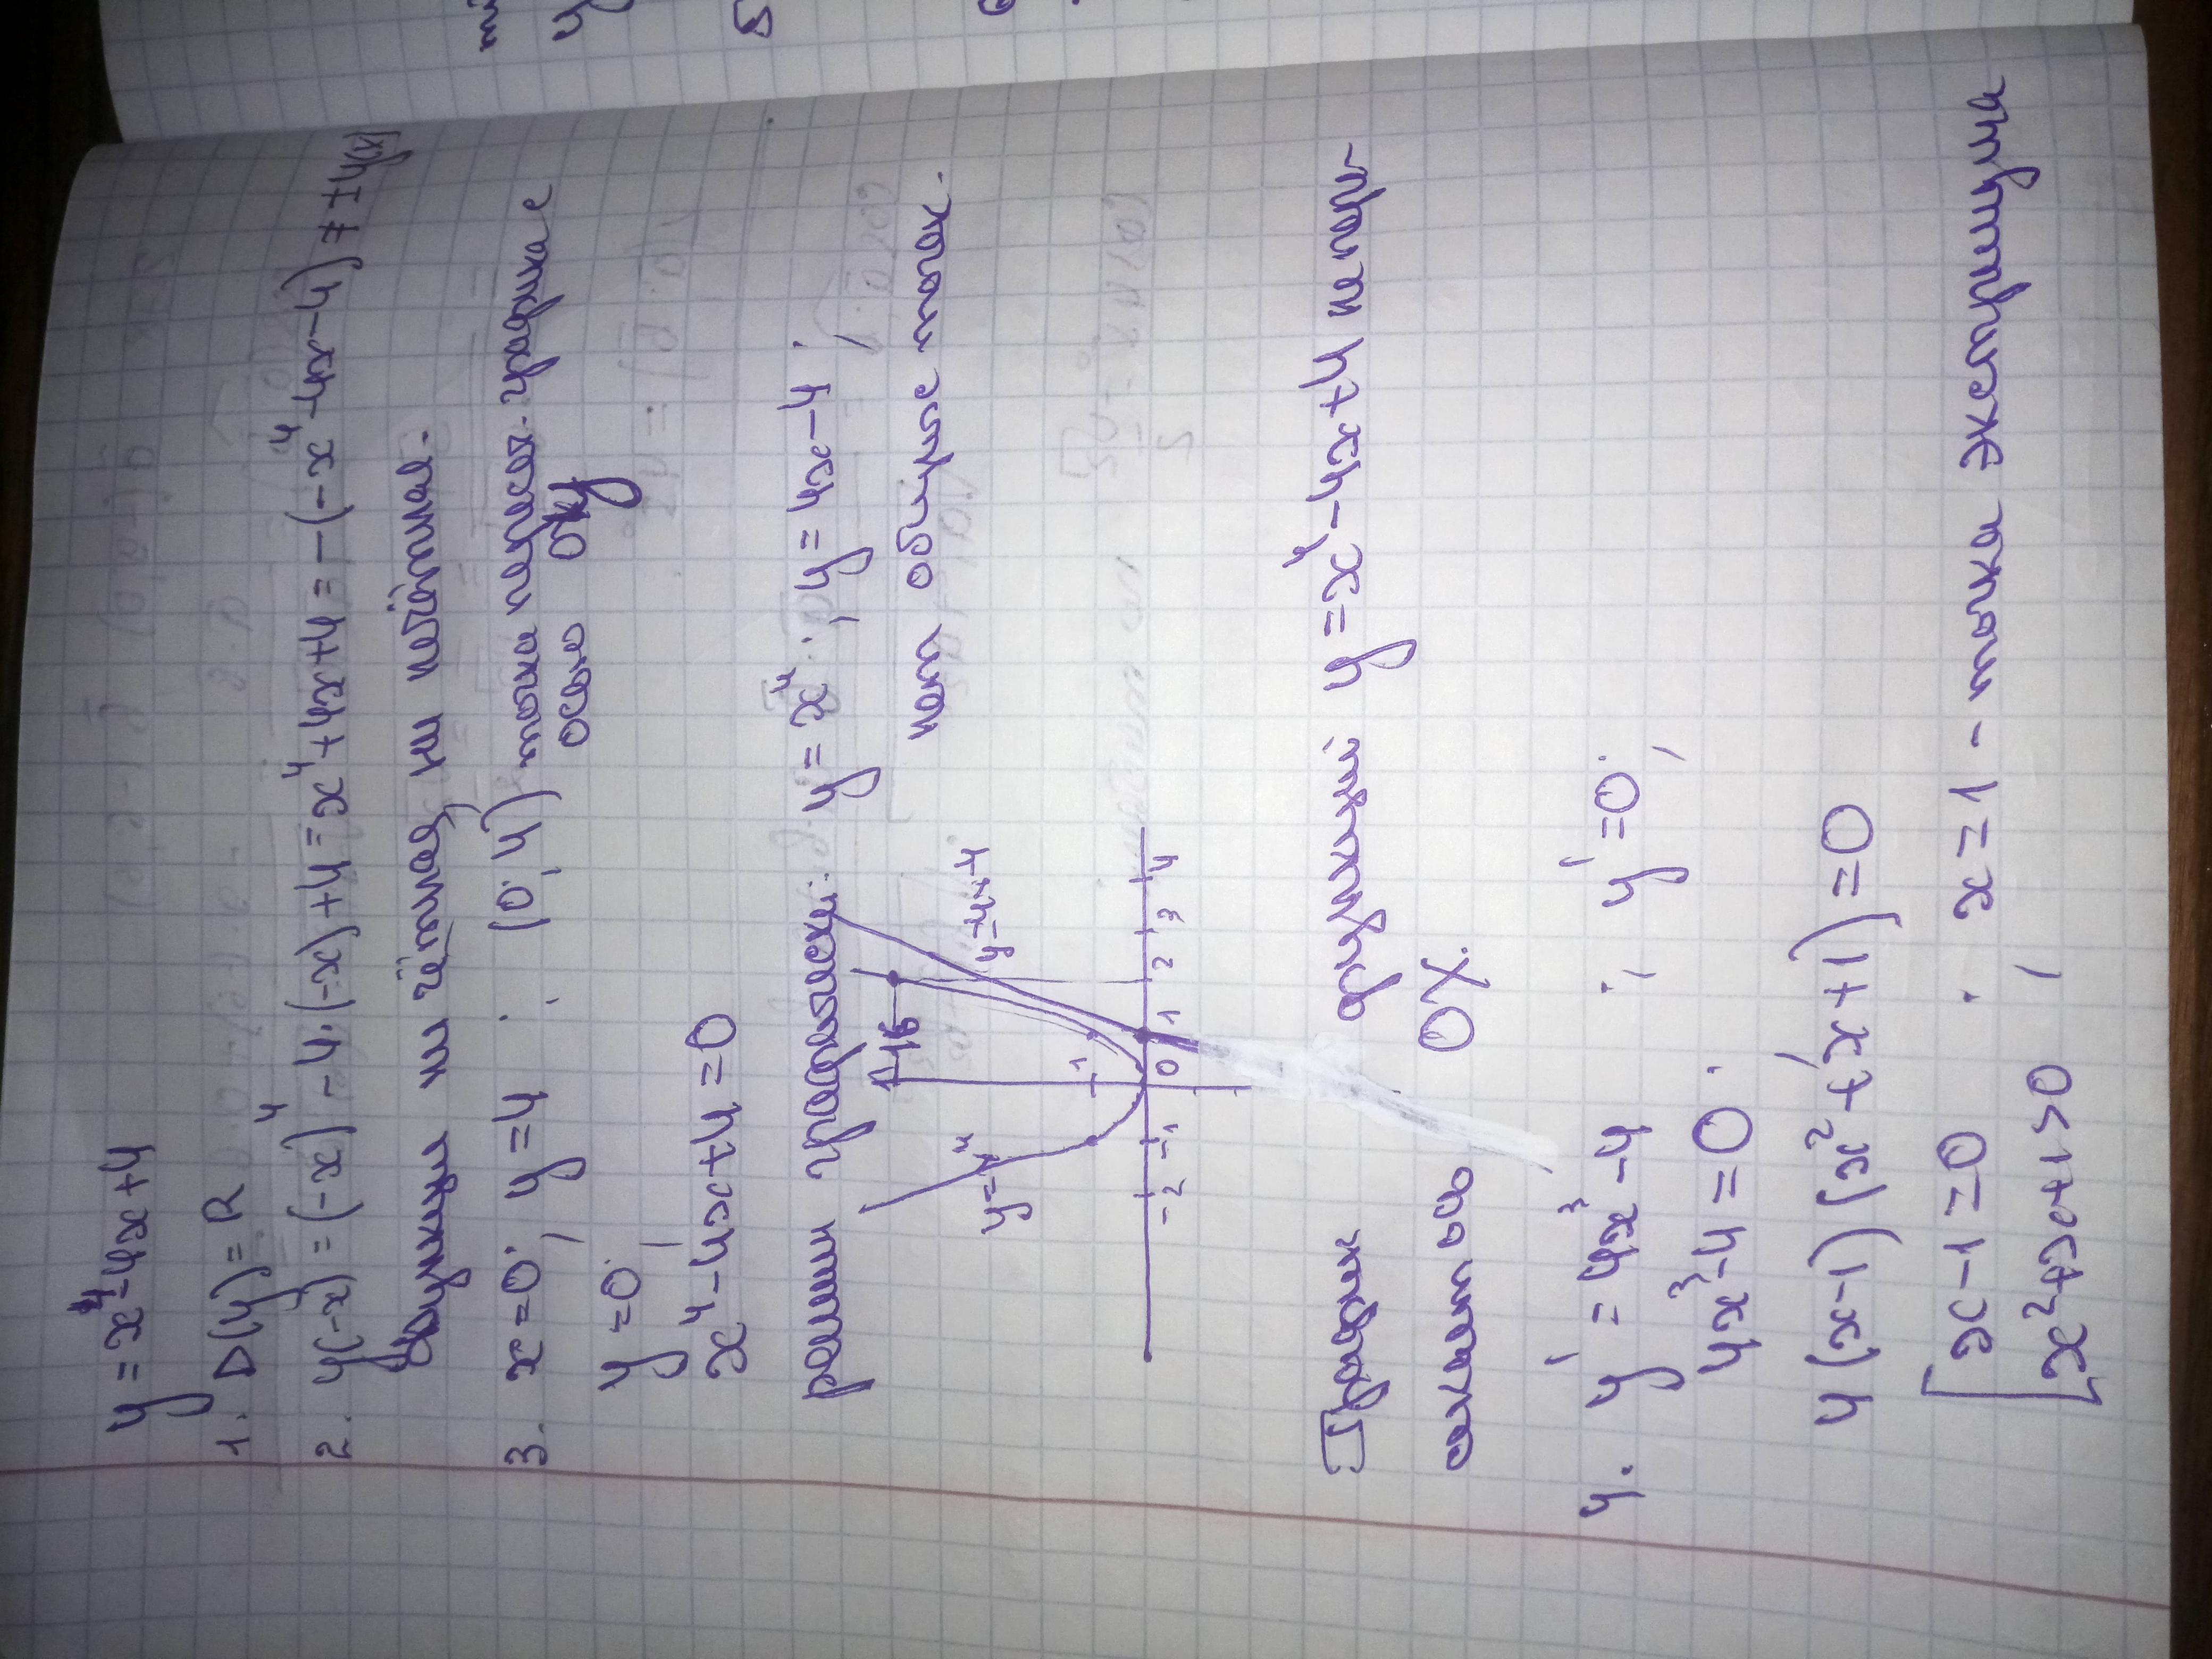 y = x⁴-4x+4
1. D(y)=R
2. y(-x) = (-x)⁴ - 4·(-x)+4 = x⁴+4x+4 = -(-x⁴-4x-4) ≠ ±y(x)
Функция ни чётная, ни нечётная.
3. x=0; y=4 ; (0;4) точка пересеч. графика с
осью Oy
y=0;
x⁴-4x+4=0
решим графически: y=x⁴; y=4x-4;
16
y=x⁴
y=4x-4
нет общие точек.
1
-2 -1 0 1 2 3 4
График функции y=x⁴-4x+4 не пере-
секает ось OX.
4. y' = 4x³-4 ; y'=0;
4x³-4=0;
4(x-1)(x²+x+1)=0
x-1=0 ; x=1 - точка экстремума
x²+x+1>0